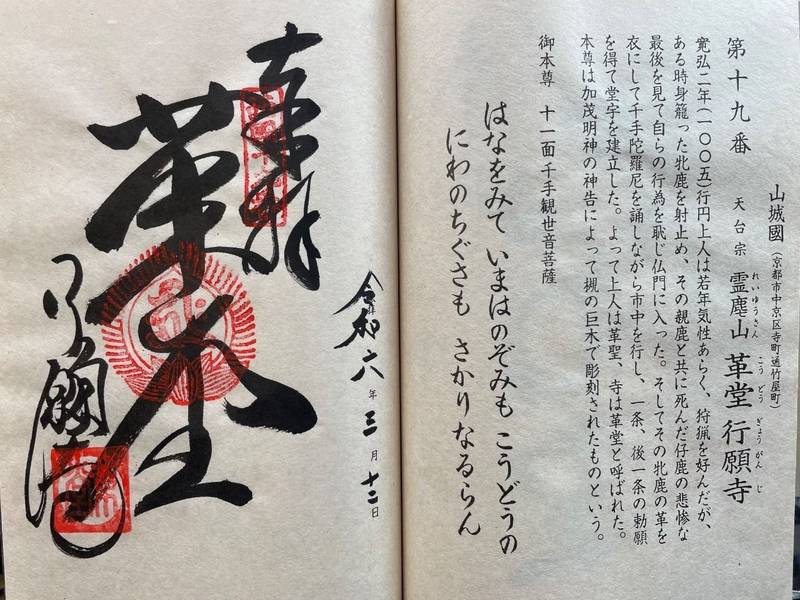 山城國（京都市中京区寺町通竹屋町）
第十九番　天台宗　霊麀山　革堂　行願寺
れいゆうさん　こうどう　ぎょうがんじ
寛弘二年（一〇〇五）行円上人は若年気性あらく、狩猟を好んだが、
ある時身籠った牝鹿を射止め、その親鹿と共に死んだ仔鹿の悲惨な
最後を見て自らの行為を恥じ仏門に入った。そしてその牝鹿の革を
衣にして千手陀羅尼を誦しながら市中を行し、一条、後一条の勅願
を得て堂宇を建立した。よって上人は革聖、寺は革堂と呼ばれた。
本尊は加茂明神の神告によって槻の巨木で彫刻されたものという。
御本尊　十一面千手観世音菩薩
はなをみて いまはのぞみも こうどうの
にわのちぐさも さかりなるらん
令和六年三月十二日
奉拝
革堂
行願寺